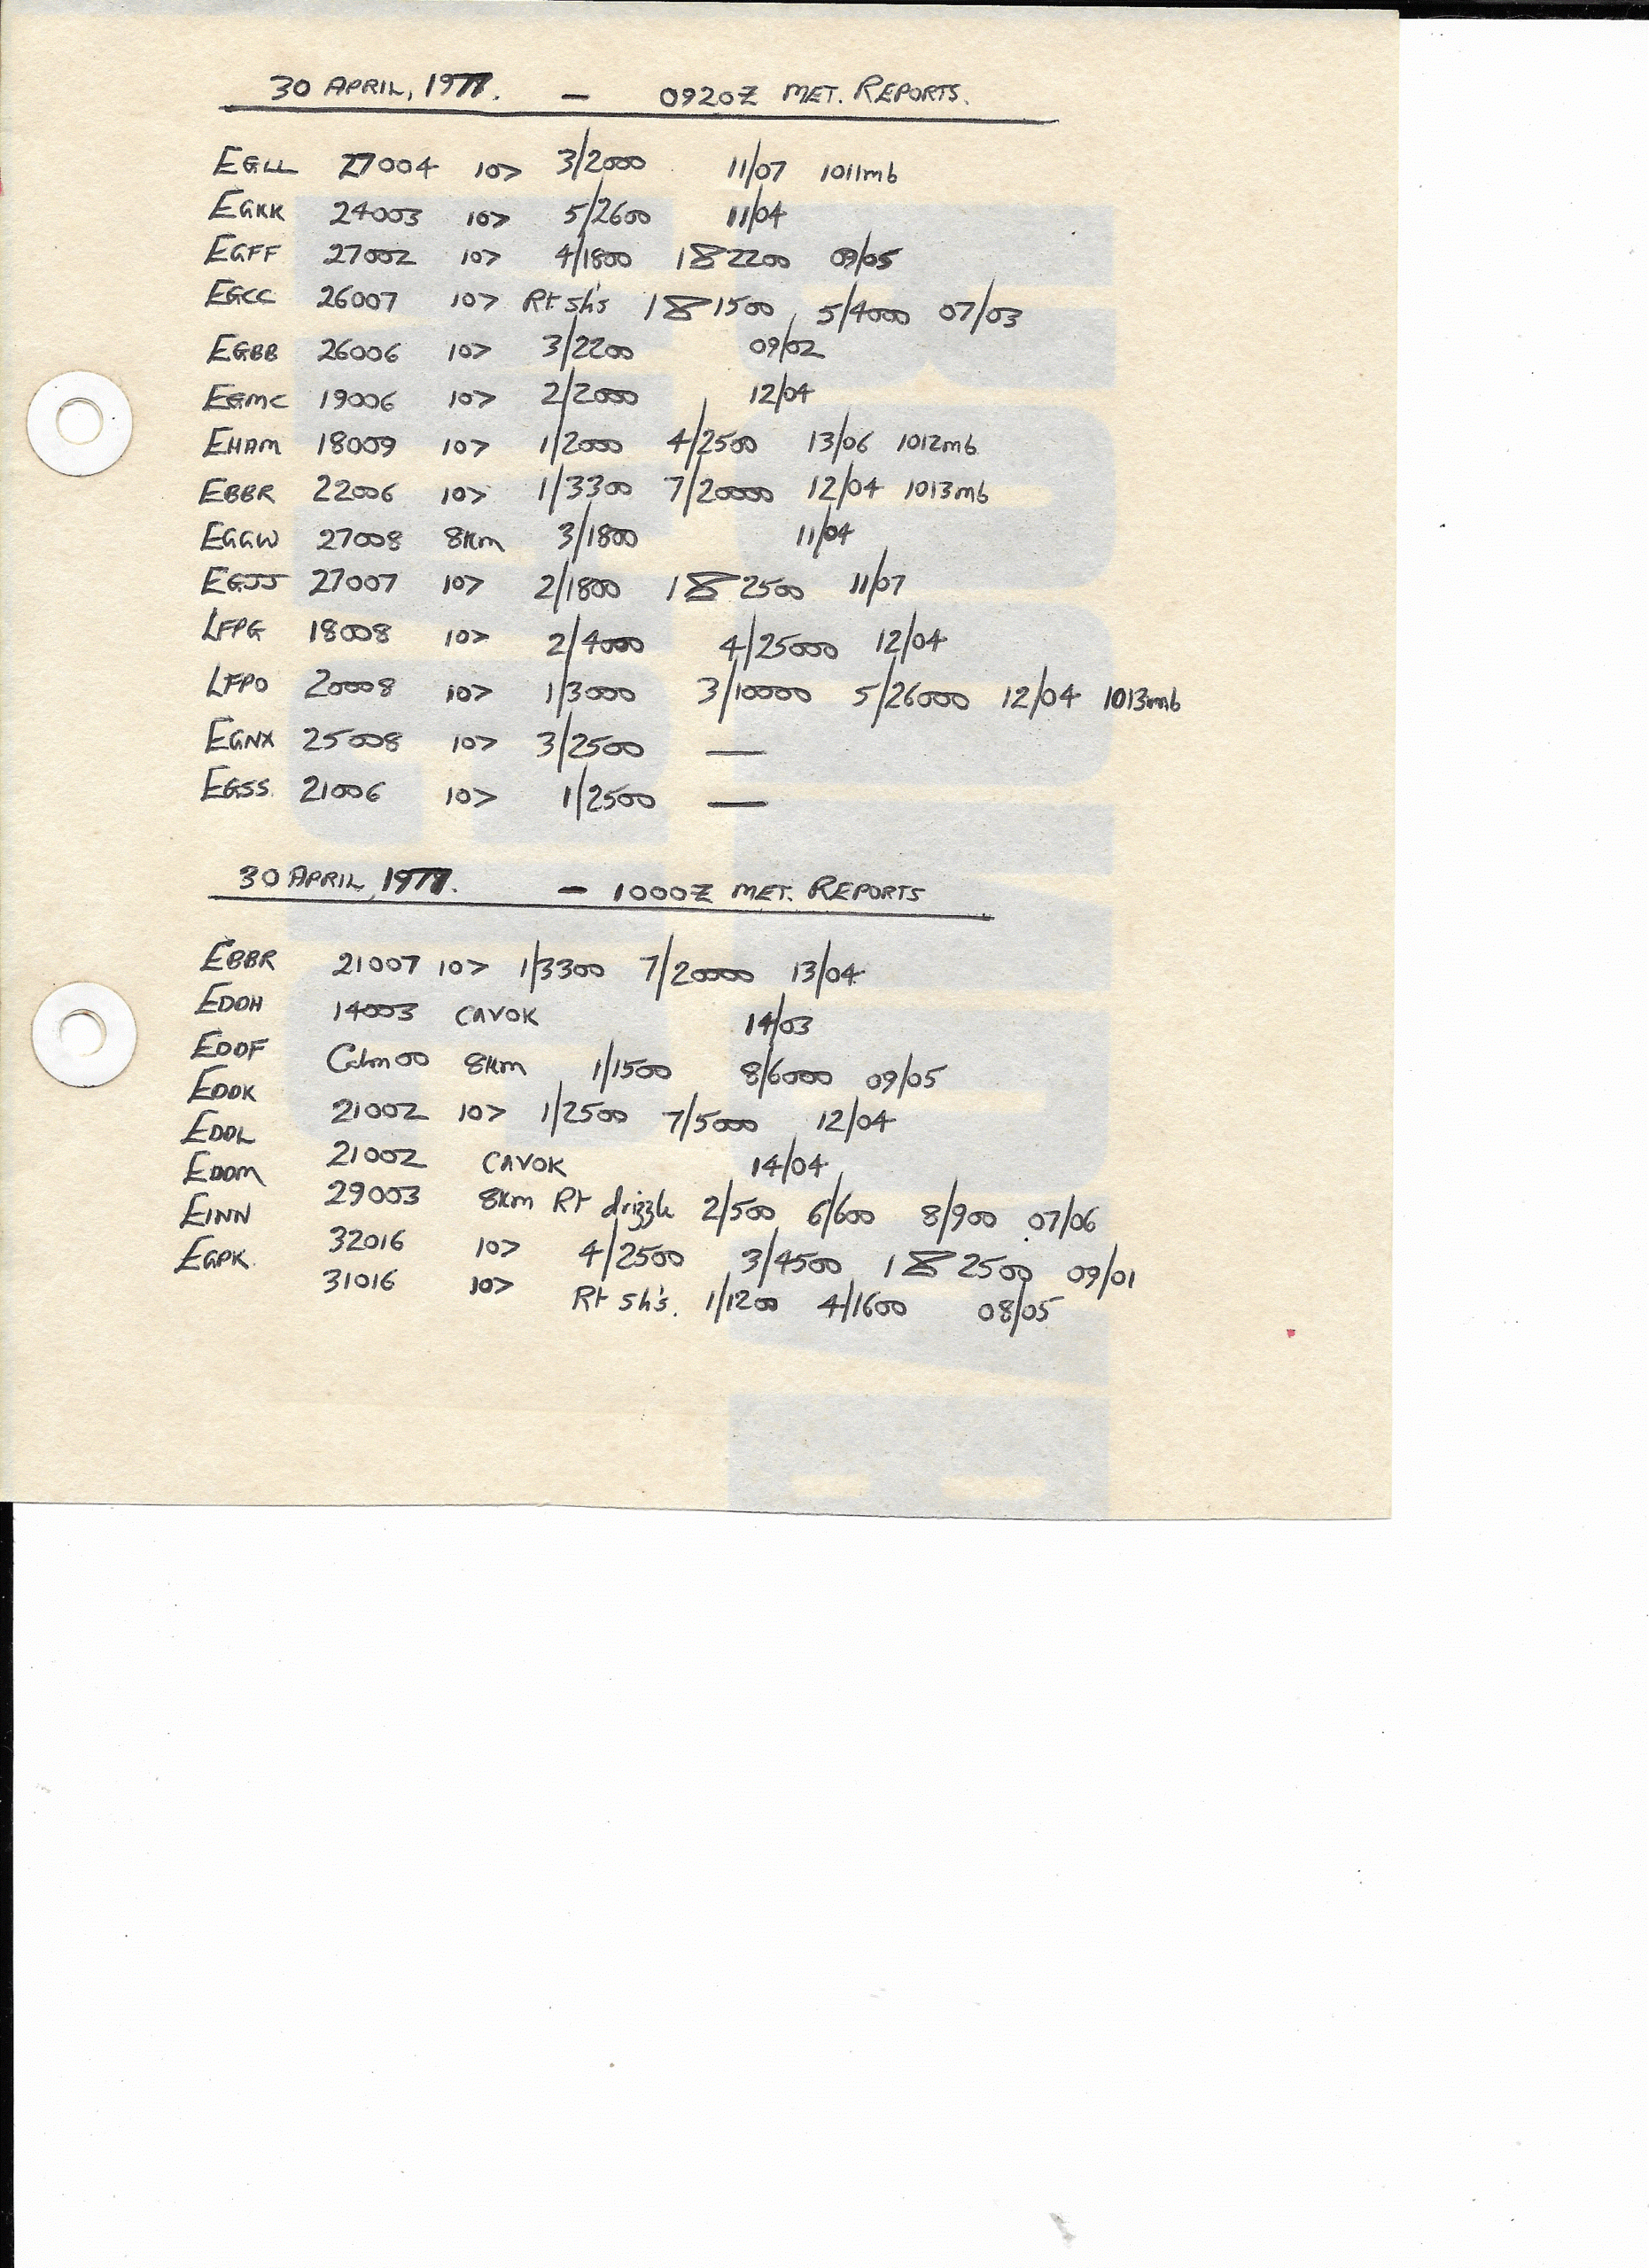 30 APRIL, 1977. — 0920Z MET. REPORTS.
EGLL 27004 10> 3/2000 11/07 1011mb
EGKK 24003 10> 5/2600 11/04
EGFF 27002 10> 4/1800 18 2200 09/05
EGCC 26007 10> Rt sh's 18 1500 5/4000 07/03
EGBB 26006 10> 3/2200 09/02
EGMC 19006 10> 2/2000 12/04
EHAM 18009 10> 1/2000 4/2500 13/06 1012mb
EBBR 22006 10> 1/3300 7/20000 12/04 1013mb
EGGW 27008 8km 3/1800 11/04
EGJJ 27007 10> 2/1800 18 2500 11/07
LFPG 18008 10> 2/4000 4/25000 12/04
LFPO 20008 10> 1/3000 3/10000 5/26000 12/04 1013mb
EGNX 25008 10> 3/2500 —
EGSS 21006 10> 1/2500 —
30 APRIL, 1977. — 1000Z MET. REPORTS
EBBR 21007 10> 1/3300 7/20000 13/04
EDDH 14003 CAVOK 14/03
EDDF Calm 00 8km 1/1500 8/6000 09/05
EDDK 21002 10> 1/2500 7/5000 12/04
EDDL 21002 CAVOK 14/04
EDDM 29003 8km Rt drizzle 2/500 6/600 8/900 07/06
EINN 32016 10> 4/2500 3/4500 18 2500 09/01
EGPK 31016 10> Rt sh's. 1/1200 4/1600 08/05